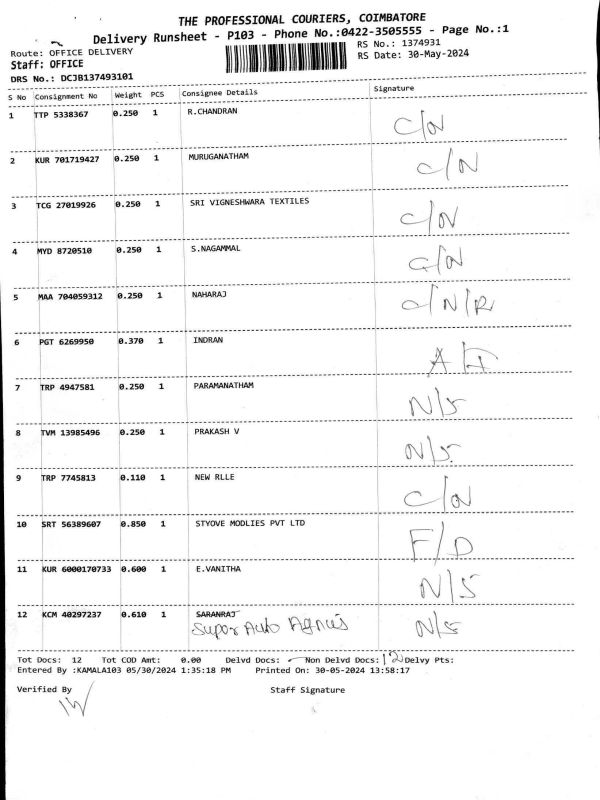 THE PROFESSIONAL COURIERS, COIMBATORE
Delivery Runsheet - P103 - Phone No.:0422-3505555 - Page No.:1
Route: OFFICE DELIVERY
RS No.: 1374931
Staff: OFFICE
RS Date: 30-May-2024
DRS No.: DCJB137493101
S No Consignment No Weight PCS Consignee Details Signature
1 TTP 5338367 0.250 1 R.CHANDRAN C/N
2 KUR 701719427 0.250 1 MURUGANATHAM C/N
3 TCG 27019926 0.250 1 SRI VIGNESHWARA TEXTILES C/N
4 MYD 8720510 0.250 1 S.NAGAMMAL C/N
5 MAA 704059312 0.250 1 NAHARAJ C/N/R
6 PGT 6269950 0.370 1 INDRAN A/I
7 TRP 4947581 0.250 1 PARAMANATHAM N/S
8 TVM 13985496 0.250 1 PRAKASH V N/S.
9 TRP 7745813 0.110 1 NEW RLLE C/N
10 SRT 56389607 0.850 1 STYOVE MODLIES PVT LTD F/D
11 KUR 6000170733 0.600 1 E.VANITHA N/S
12 KCM 40297237 0.610 1 SARANRAJ N/S
Super Auto
Tot Docs: 12 Tot COD Amt: 0.00 Delvd Docs: Non Delvd Docs: 12 Delvy Pts:
Entered By :KAMALA103 05/30/2024 1:35:18 PM Printed On: 30-05-2024 13:58:17
Verified By Staff Signature